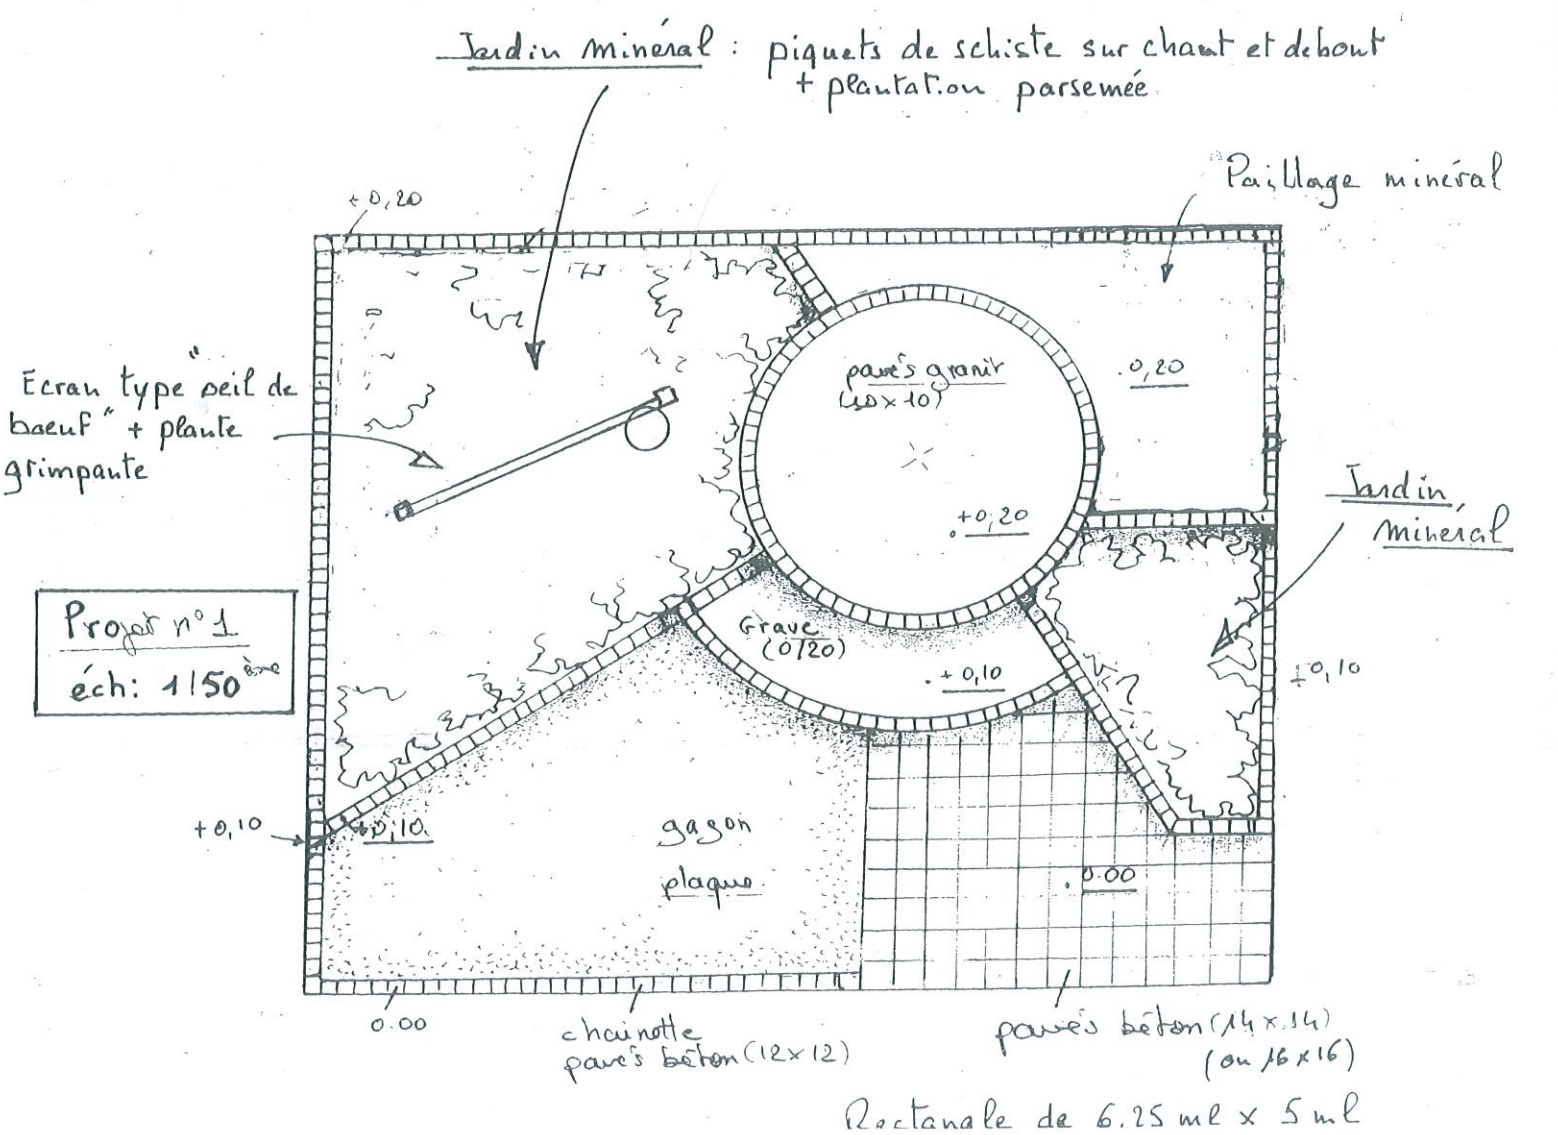 Jardin minéral : piquets de schiste sur chant et debout
+ plantation parsemée
Paillage minéral
+0,20
Ecran type "oeil de
boeuf" + plante
grimpante
pavés granit
(10x10)
0,20
+0,20
Jardin
minéral
Projet n°1
éch: 1/50ème
Grave
(0/20)
+0,10
+0,10
+0,10
+0,10
gazon
plaque
0.00
0.00
chainotte
pavés béton (12x12)
pavés béton (14x14)
(ou 16x16)
Rectangle de 6.25 ml x 5 ml